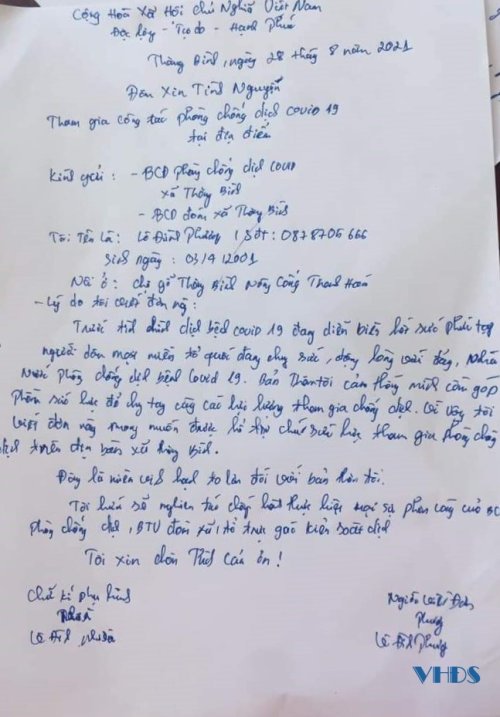 Cộng Hoà Xã Hội Chủ Nghĩa Việt Nam
Độc lập - Tự do - Hạnh Phúc
Thăng Bình, ngày 28 tháng 8 năm 2021
Đơn Xin Tình Nguyện
Tham gia công tác phòng chống dịch covid 19
tại địa điểm
Kính gửi : - BCĐ phòng chống dịch COVID
xã Thăng Bình
- BCĐ đoàn xã Thăng Bình
Tôi Tên Là: Lê Đình Phương | Sđt: 0878705666
Sinh ngày : 03/4/2001
Nơi ở : Thăng Bình Nông Cống Thanh Hoá
- Lý do tôi viết đơn này :
Trước tình hình dịch bệnh covid 19 đang diễn biến hết sức phức tạp
người dân mọi miền tổ quốc đang chung sức, đồng lòng với Đảng, Nhà
Nước phòng chống dịch bệnh Covid 19. Bản Thân tôi cảm thấy mình cần góp
phần sức lực để chung tay cùng các lực lượng tham gia chống dịch. Vì vậy tôi
viết đơn này mong muốn được hỗ trợ chút sức lực tham gia phòng chống
dịch trên địa bàn xã Thăng Bình.
Đây là niềm vinh hạnh to lớn đối với bản thân tôi.
Tôi hứa sẽ nghiêm túc chấp hành thực hiện mọi sự phân công của BCĐ
phòng chống dịch, BTV đoàn xã, tổ trực gác kiểm soát dịch
Tôi xin chân Thành cảm ơn !
Chữ kí phụ huynh
Lê Đình
Người viết Đơn
Phương
Lê Đình Phương
VHDS